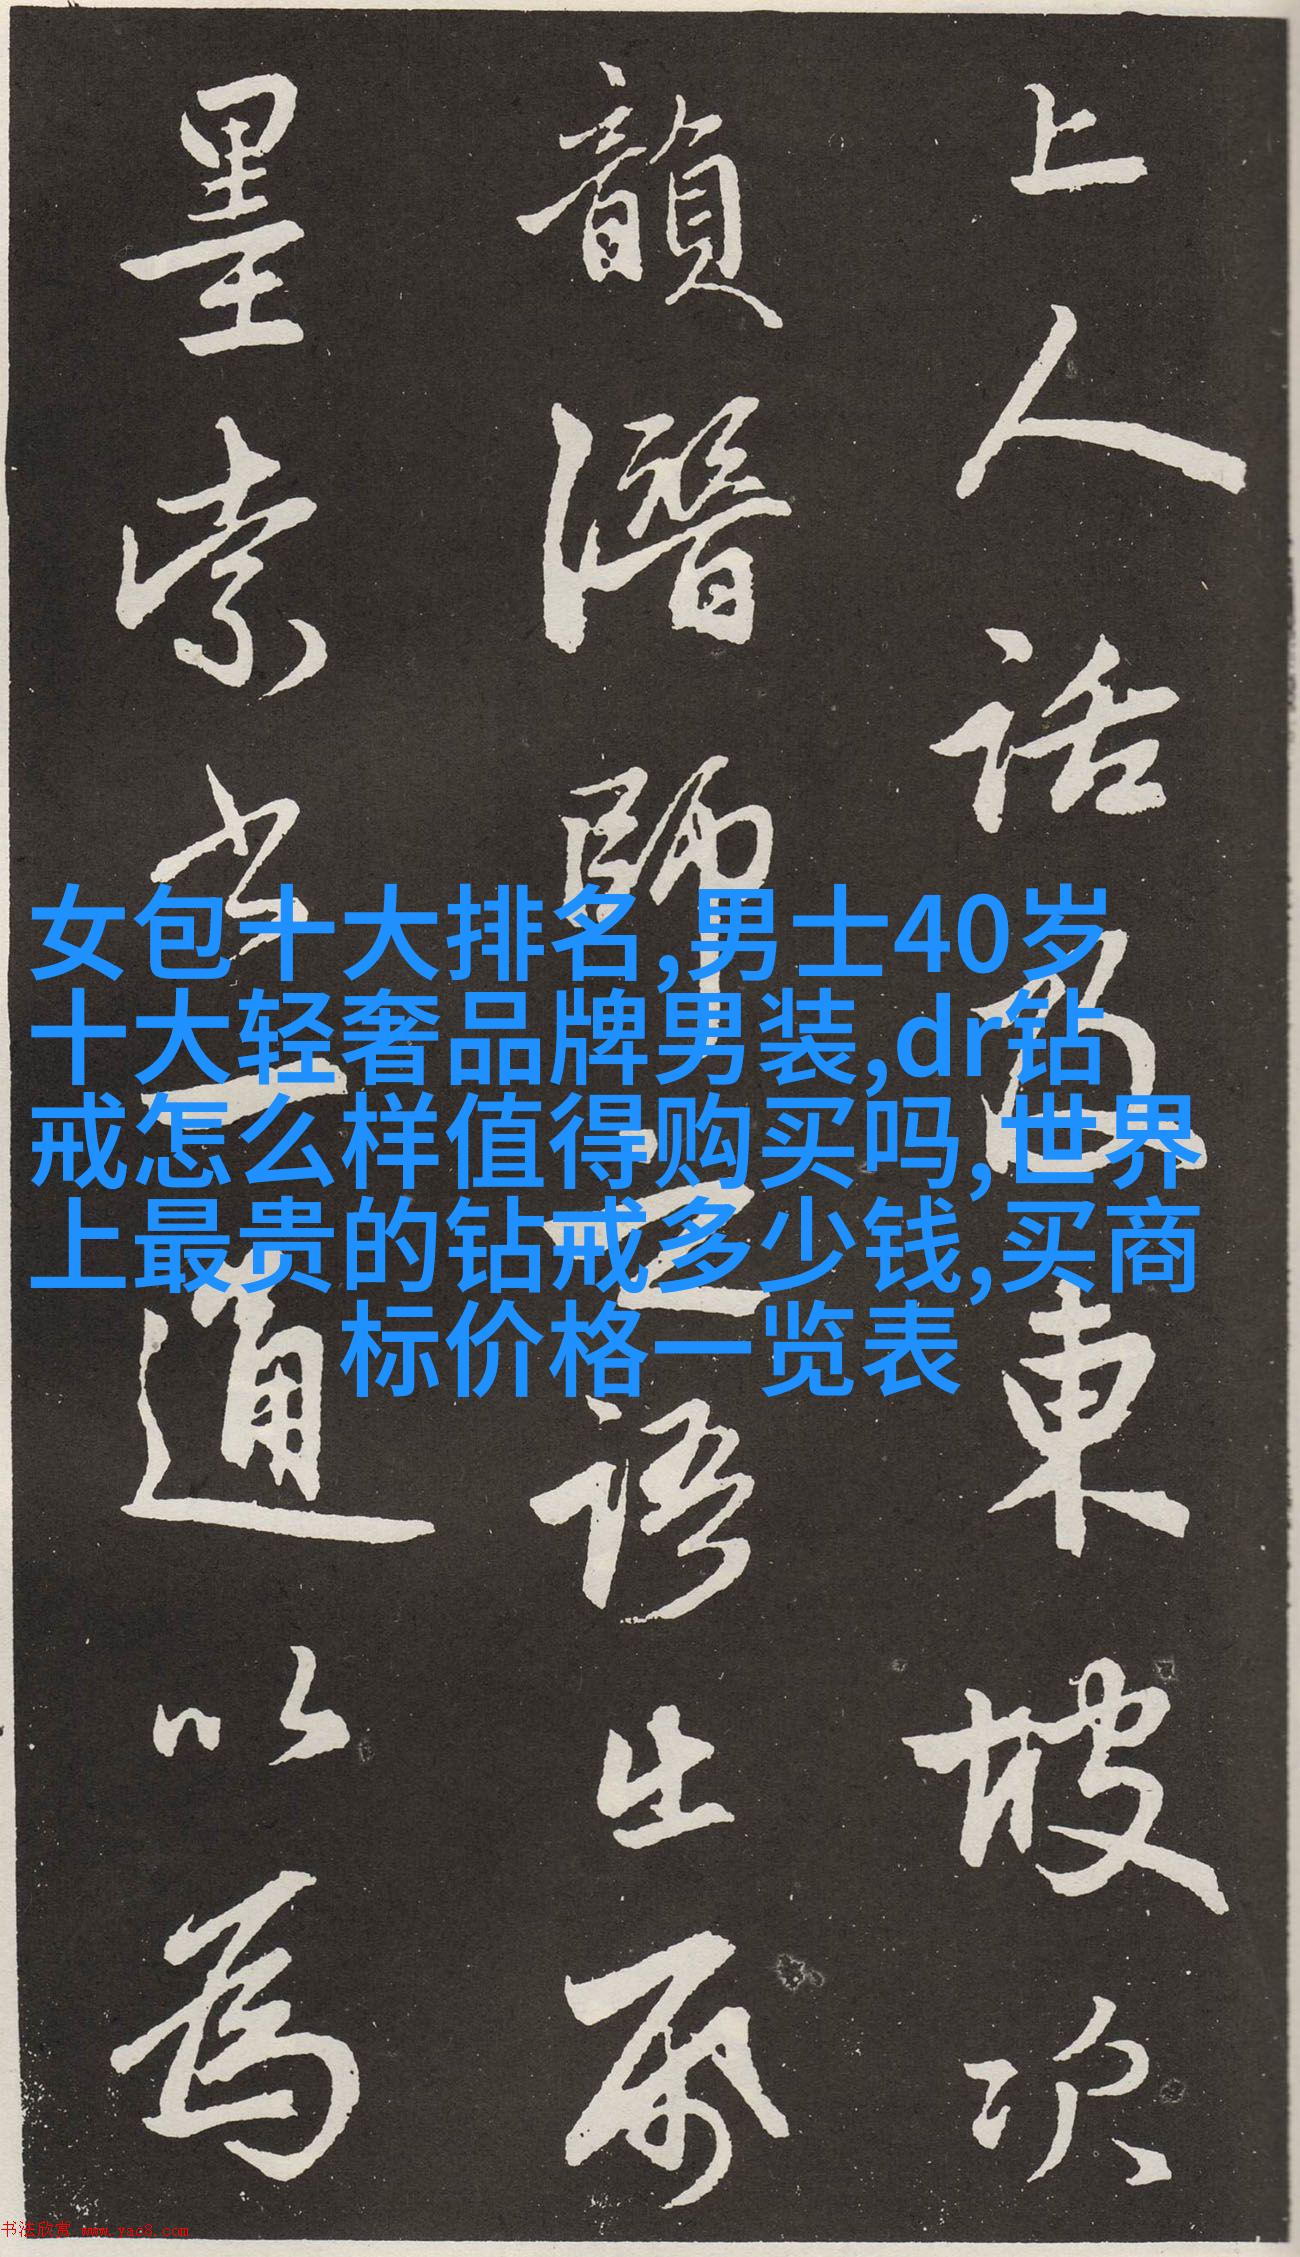 上人話及東坡次
韻潛師之語出
墨索書一通以為
女包十大排名,男士40岁
十大轻奢品牌男装,dr钻
戒怎么样值得购买吗,世界
上最贵的钻戒多少钱,买商
标价格一览表
书法欣赏 www.yac8.com